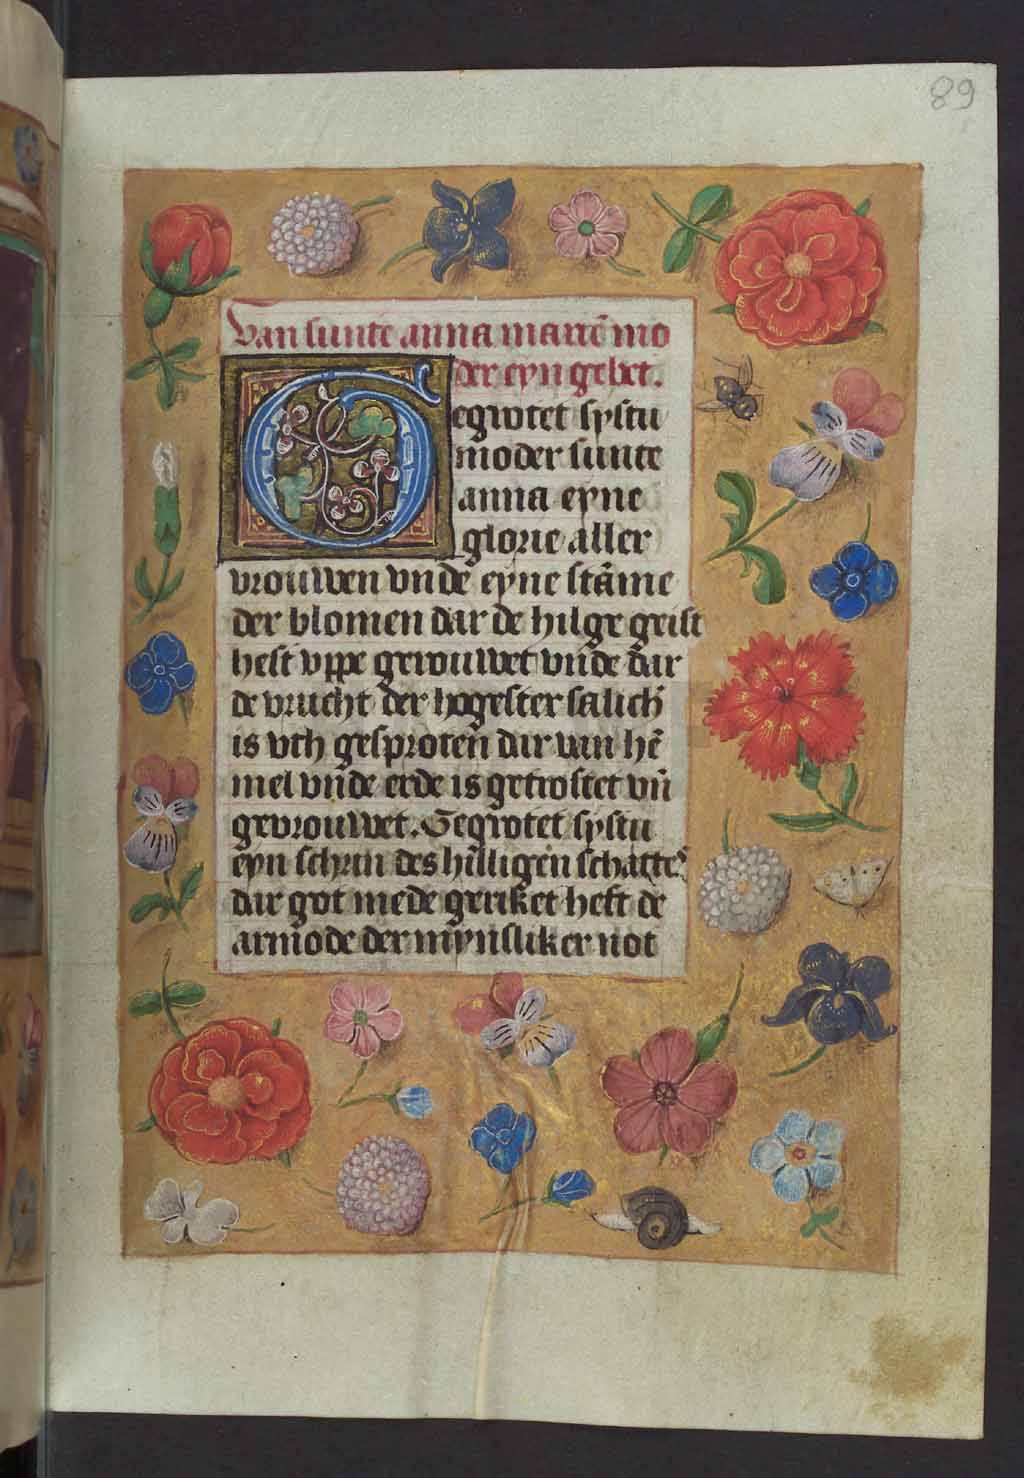 89
Van sunte anna mariē mo
der eyn gebet.
Gegrotet systu
moder sunte
anna eyne
glorie aller
vrouwen vnde eyne stāme
der blomen dar de hilge geist
heft vppe gerouwet vn̄de dar
de vrucht der hogester salich̄
is vth gesproten dar van hē
mel vnde erde is getrostet vn̄
gevrouwet. Gegrotet systu
eyn schrin des hilligen schattes
dar got mede geriket heft de
armode der mynsliker not